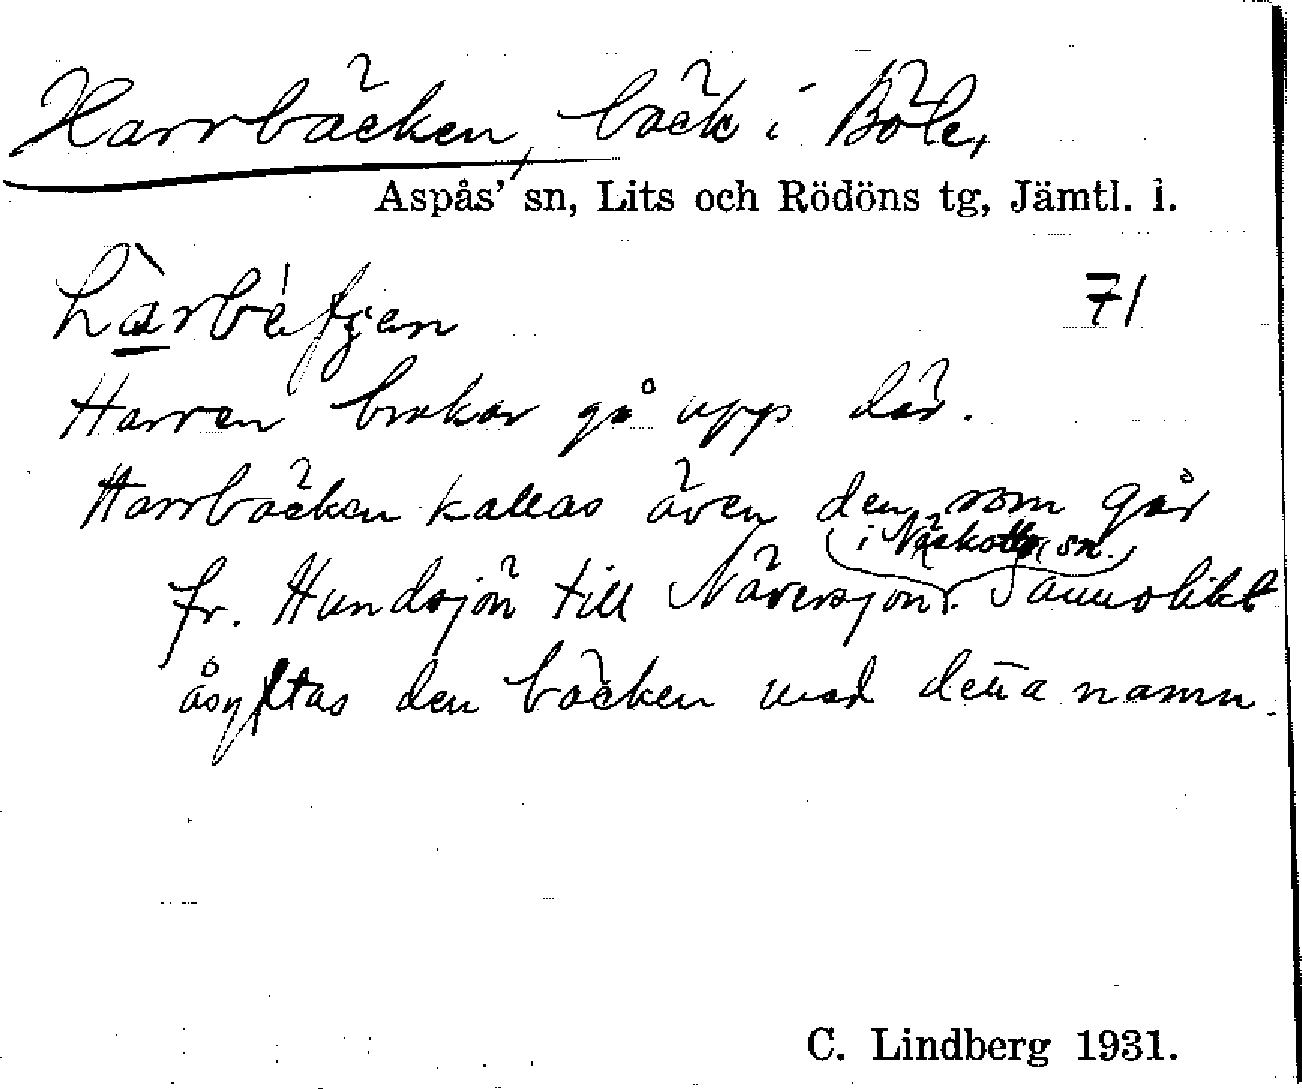 Harrbäcken, bäck i Böle,
Aspås' sn, Lits och Rödöns tg, Jämtl. l.
71
Harren brukar gå upp där.
Harrbäcken kallas även den som går
i Näskotts sn.
fr. Hundsjön till Näversjön. Sannolikt
åsyftas den bäcken med detta namn.
C. Lindberg 1931.